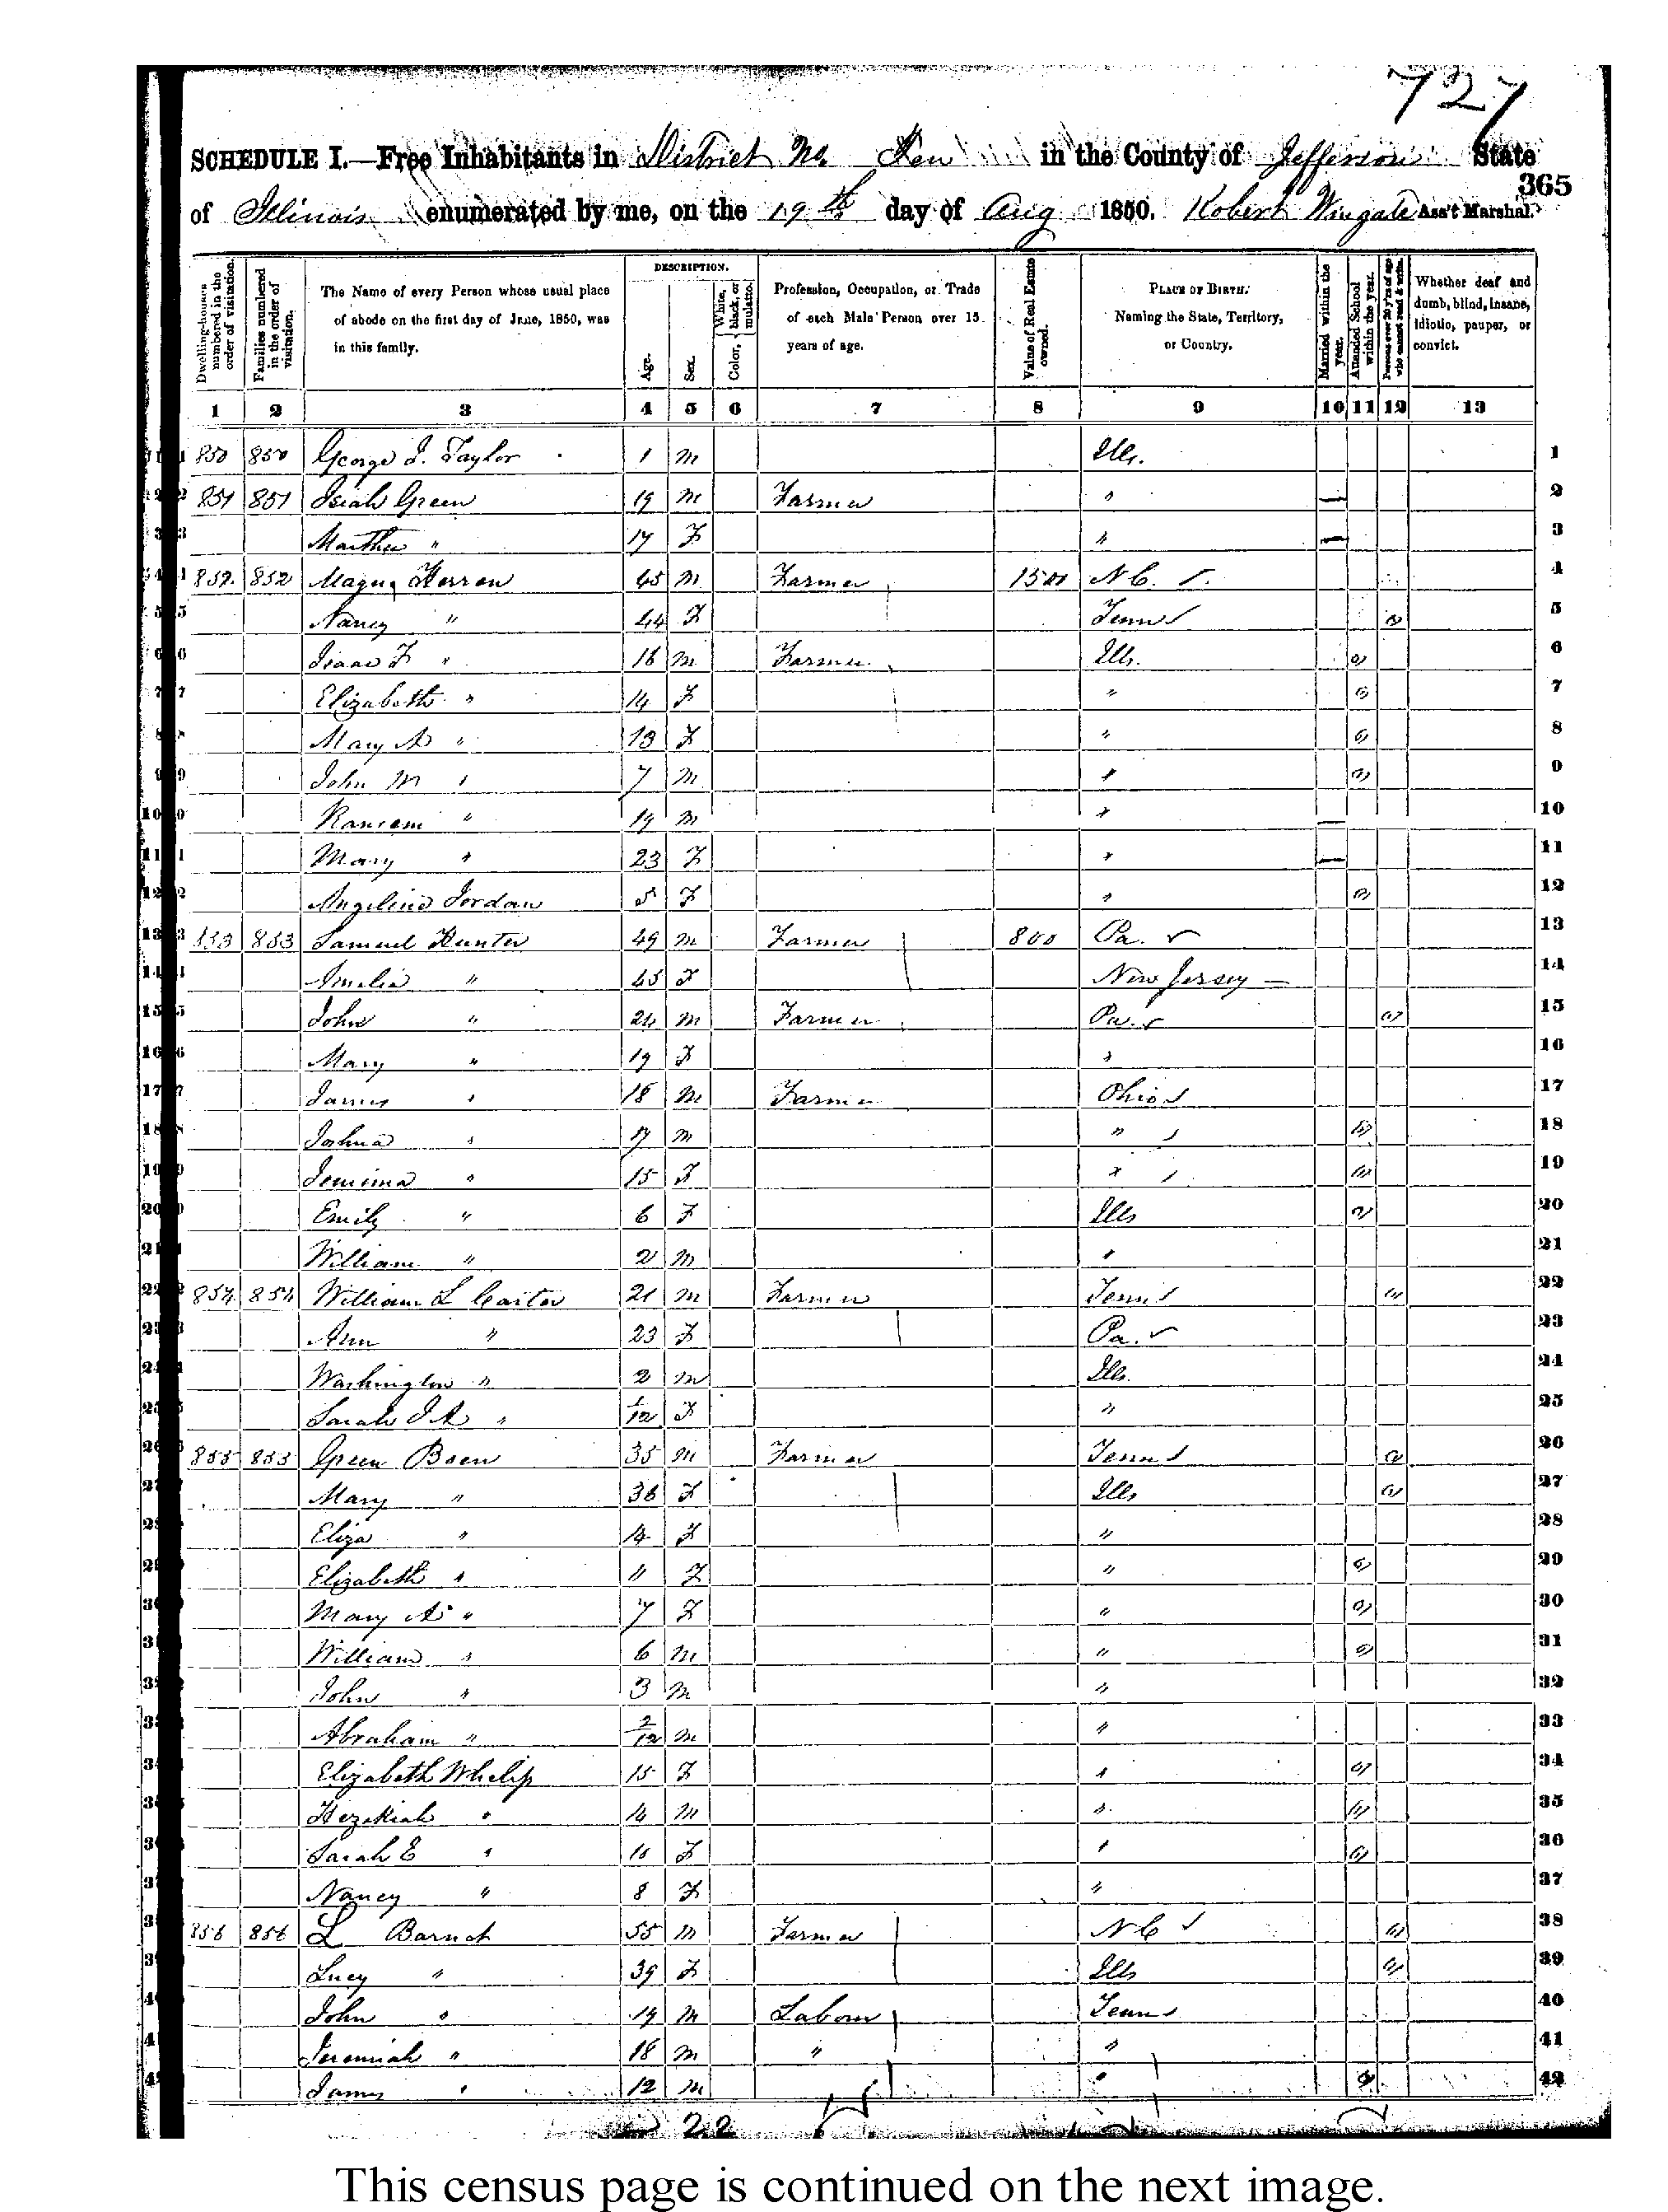 727
SCHEDULE I.—Free Inhabitants in District No. Ten in the County of Jefferson State
365
of Illinois enumerated by me, on the 19th day of Aug 1850. Robert Wingate Ass't Marshal.
Dwelling-houses numbered in the order of visitation.
Families numbered in the order of visitation.
The Name of every Person whose usual place of abode on the first day of June, 1850, was in this family.
DESCRIPTION.
Age.
Sex.
Color, White, black, or mulatto.
Profession, Occupation, or Trade of each Male Person over 15 years of age.
Value of Real Estate owned.
PLACE OF BIRTH. Naming the State, Territory, or Country.
Married within the year.
Attended School within the year.
Persons over 20 y'rs of age who cannot read & write.
Whether deaf and dumb, blind, insane, idiotic, pauper, or convict.
1 2 3 4 5 6 7 8 9 10 11 12 13
1 850 850 George J. Taylor 1 M Ills. 1
2 851 851 Isiah Green 19 M Farmer " — 2
3 Martha " 17 F " — 3
4 852 852 Herron 45 M Farmer 1500 N C. 4
5 Nancy " 44 F Tenn 5
6 Isaac F " 16 M Farmer Ills. 6
7 Elizabeth " 14 F " 7
8 Mary A " 13 F " 8
9 John M " 7 M " 9
10 Ransom " 19 M " — 10
11 Mary " 23 F " — 11
12 Angeline Jordan 5 F " 12
13 853 853 Samuel Hunter 49 M Farmer 800 Pa. 13
14 Amelia " 45 F New Jersey 14
15 John " 24 M Farmer Pa. 15
16 Mary " 19 F " 16
17 James " 18 M Farmer Ohio 17
18 Joshua " 17 M " 18
19 Jemima " 15 F " 19
20 Emily " 6 F Ills 20
21 William " 2 M " 21
22 854 854 William L Carter 21 M Farmer Tenn 22
23 Ann " 23 F Pa. 23
24 Washington " 2 M Ills. 24
25 Sarah J A " 1/12 F " 25
26 855 855 Green Boen 35 M Farmer Tenn 26
27 Mary " 36 F Ills 27
28 Eliza " 14 F " 28
29 Elizabeth " 11 F " 29
30 Mary A " 7 F " 30
31 William " 6 M " 31
32 John " 3 M " 32
33 Abraham " 2/12 M " 33
34 Elizabeth Whelip 15 F " 34
35 Hezekiah " 14 M " 35
36 Sarah E " 10 F " 36
37 Nancy " 8 F " 37
38 856 856 L Barnet 55 M Farmer N C 38
39 Lucy " 39 F Ills 39
40 John " 19 M Labour Tenn 40
41 Jeremiah " 18 M " " 41
42 James " 12 M " 42
22
This census page is continued on the next image.